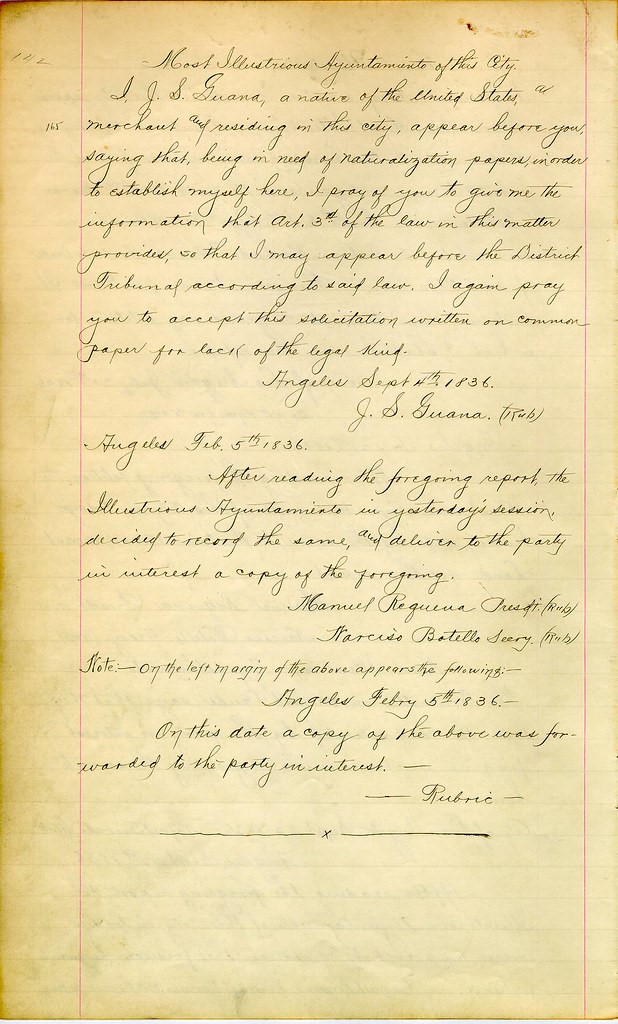 142
Most Illustrious Ayuntamiento of this City.
I, J. S. Guana, a native of the United States, a
165
merchant and residing in this city, appear before you,
saying that, being in need of naturalization papers, in order
to establish myself here, I pray of you to give me the
information that Art. 3rd of the law in this matter
provides, so that I may appear before the District
Tribunal according to said law. I again pray
you to accept this solicitation written on common
paper for lack of the legal kind.
Angeles Sept 4th 1836.
J. S. Guana. (Rub)
Angeles Feb. 5th 1836.
After reading the foregoing report, the
Illustrious Ayuntamiento in yesterday's session,
decided to record the same, and deliver to the party
in interest a copy of the foregoing.
Manuel Requena Presdt. (Rub)
Narciso Botello Secry. (Rub)
Note:— On the left margin of the above appears the following:—
Angeles Febry 5th 1836.—
On this date a copy of the above was for-
warded to the party in interest. —
— Rubric —
x